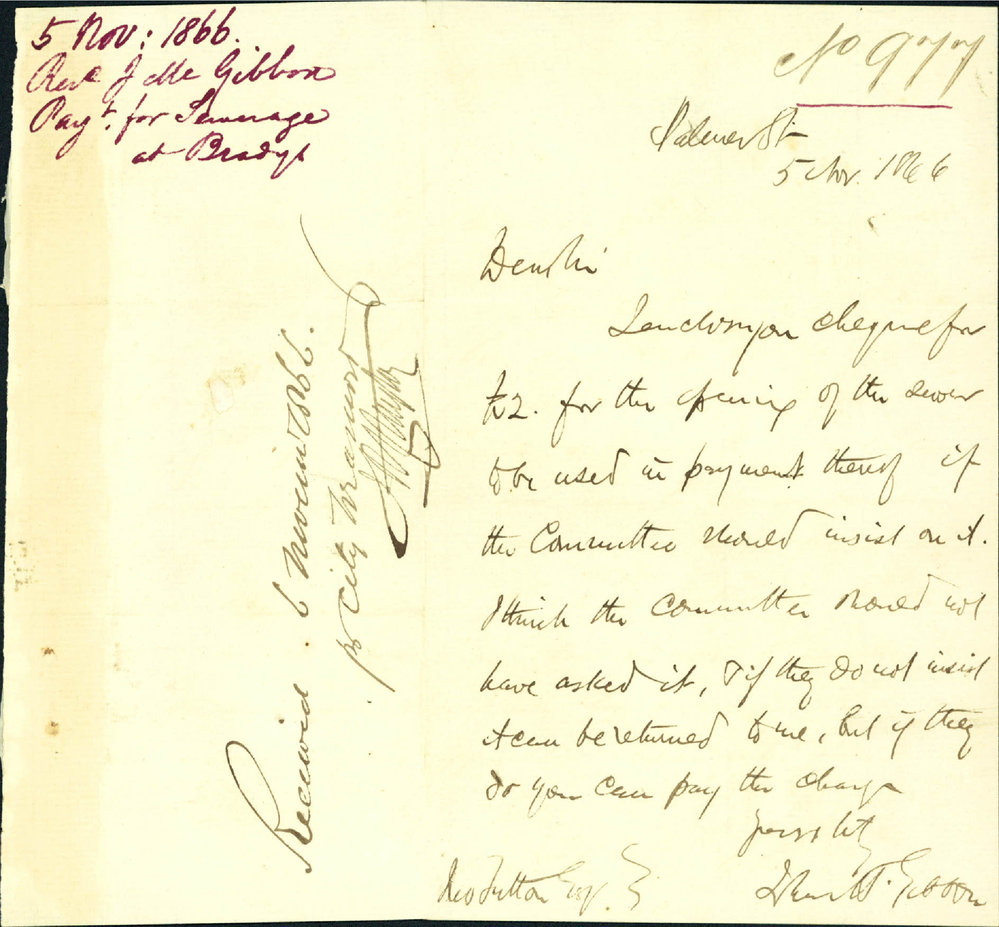 5 Nov: 1866.
Revd J Mc Gibbon
Payt. for Sewerage
at Bradys
No 977
Palmer St
5 Nov. 1866
Dear Sir
I enclose you cheque for
£2. for the opening of the sewer
to be used in payment thereof if
the Committee should insist on it.
I think the Committee should not
have asked it, & if they do not insist
it can be returned to me, but if they
do you can pay the charge
yours &c
Gibbon
Esq.
Received 6 November 1866.
pr City Treasurer